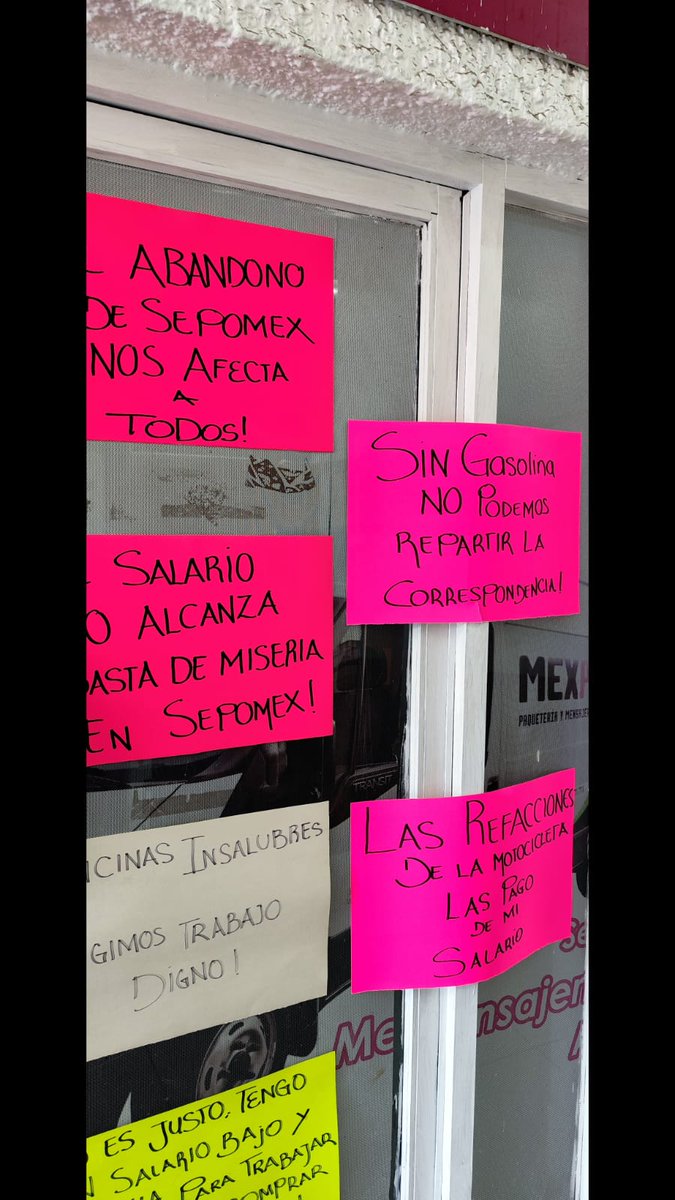 ABANDONO
DE SEPOMEX
NOS AFECTA
A
TODOS!
SIN Gasolina
NO PODEMOS
REPARTIR LA
CORRESPONDENCIA!
SALARIO
O ALCANZA
ASTA DE MISERIA
EN SEPOMEX!
MEXP
PAQUETERIA Y MENSAJE
TRANSIT
LAS REFACCIONES
DE LA MOTOCICLETA
LAS PAGO
DE MI
SALARIO
ICINAS INSALUBRES
GIMOS TRABAJO
DIGNO!
Me nsajer
ES JUSTO, TENGO
N SALARIO BAJO Y
PARA TRABAJAR
COMPRAR